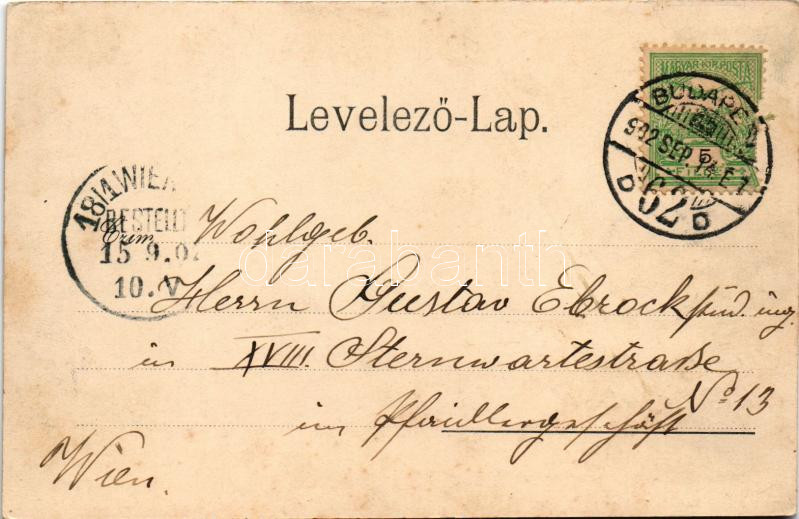 MAGYAR KIR. POSTA
5
Levelező-Lap.
BUDAPEST
902 SEP. 14. E 7
D 62 D
18/1 WIEN
BESTELLT
15 9.02
10. V
Czím
Wohlgeb.
Herrn Gustav Ebrock stud. ing.
in XVIII. Sternwartestraße
No 13
im Pfaidlergeschäft
Wien.
darabanth